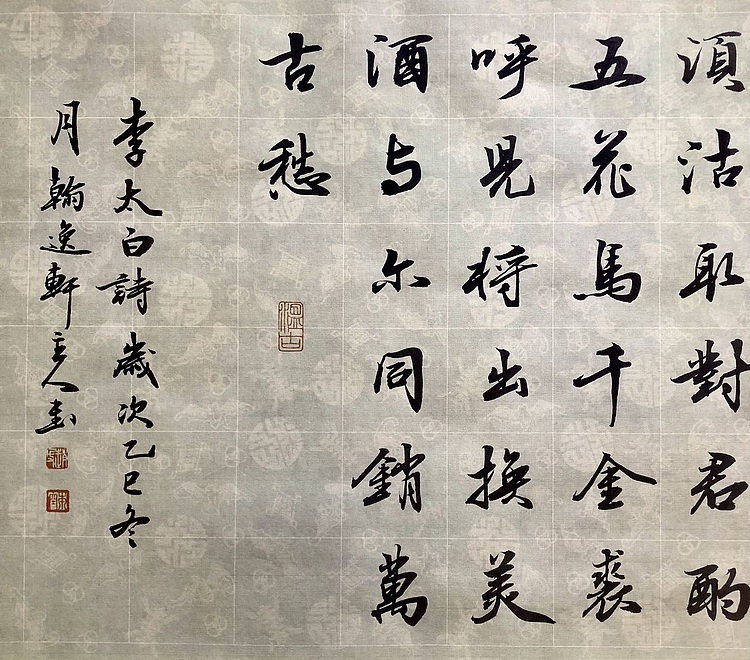 須沽取對君酌
五花馬千金裘
呼兒將出換美
酒与尔同銷萬
古愁
李太白詩歲次乙巳冬
月翰逸軒主人書
溫古